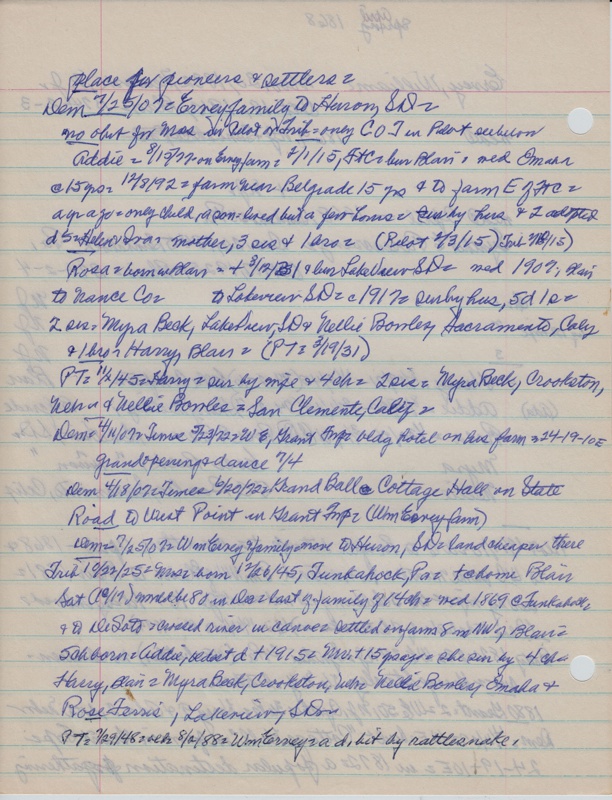 place for pioneers & settlers =
Dem 7/25/07 = Ervey family to Huron, SD =
no obit for Mrs in Pilot or Trib = only COT in Pilot
Addie = 8/15/72 on Ervey farm = 2/1/15, = bur Blair = med Omaha
c 15 yrs = 12/8/92 = farm near Belgrade 15 yrs & to farm E of
a yr ago = only child, a son lived but a few hours = sur by hus & 2 adopted
d's = Helen & Iva = mother, 3 sis & 1 bro = (Pilot 2/3/15) Trib
Rosa = born Blair = + 3/12/31 & bur Lakeview SD = med 1907, Blair
to Nance Co = to Lakeview SD = c 1917 = sur by hus, 5d 1s =
2 sis = Myra Beck, Lakeview, SD & Nellie Bowles, Sacramento, Caly
& 1 bro = Harry, Blair = (PT = 3/19/31)
PT = 45 = Harry = sur by wife & 4 ch = 2 sis = Myra Beck, Crookston,
Nebr & Nellie Bowles = San Clemente, Calif =
Dem = 4/11/07 = Times 5/23/72 = W E, Grant Twp = bldg hotel on his farm = 24-19-10E
grand opening & dance 7/4
Dem 4/18/07 = Times 6/20/72 = Grand Ball @ Cottage Hall on State
Road to West Point in Grant Twp = (Wm Ervey farm)
Dem = 7/25/07 = Wm Ervey & family move to Huron, SD = land cheaper there
Trib 10/22/25 = Mrs = born 12/26/45, Tunkahock, Pa = + @ home Blair
Sat (10/17) = would be 80 in Dec = last of family of 14 ch = med 1869 @ Tunkahock,
& to DeSoto = crossed river in canoe = settled on farm 8 m NW of Blair =
5 ch born = Addie, oldest d + 1915 = Mr + 15 yrs ago = she sur by 4 ch =
Harry, Blair = Myra Beck, Crookston, Nebr = Nellie Bowles, Omaha &
Rose Ferris, Lakeview, SD =
PT = 7/29/48 = 8/2/88 = Wm Ervey = a d, bit by rattlesnake,